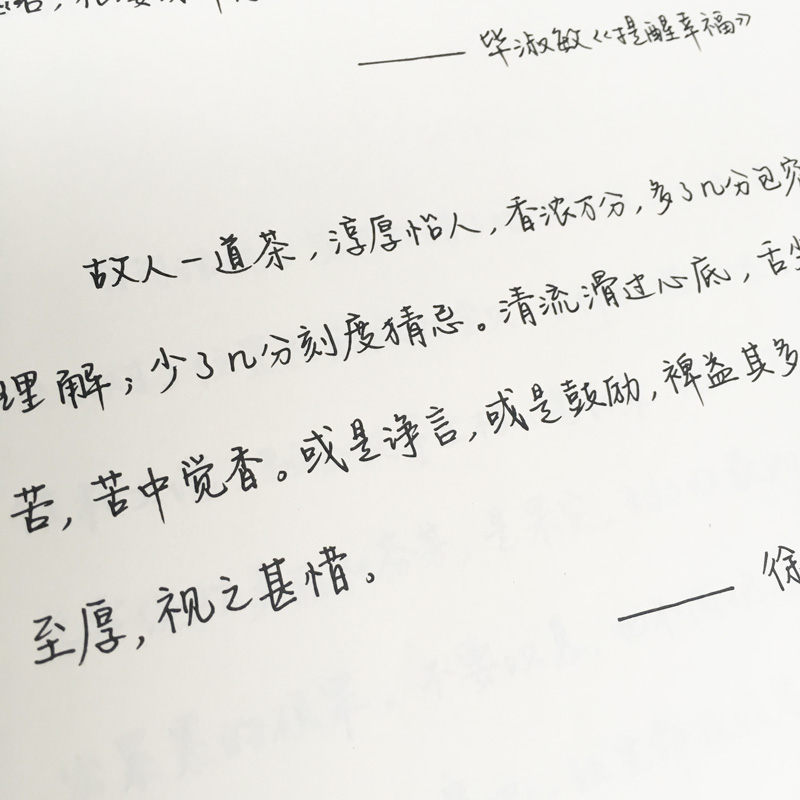 ——毕淑敏《提醒幸福》
故人一道茶，淳厚怡人，香浓万分，多了几分包容
理解；少了几分刻度猜忌。清流滑过心底，舌尖
苦，苦中觉香。或是诤言，或是鼓励，裨益其多
至厚，视之甚惜。
——徐